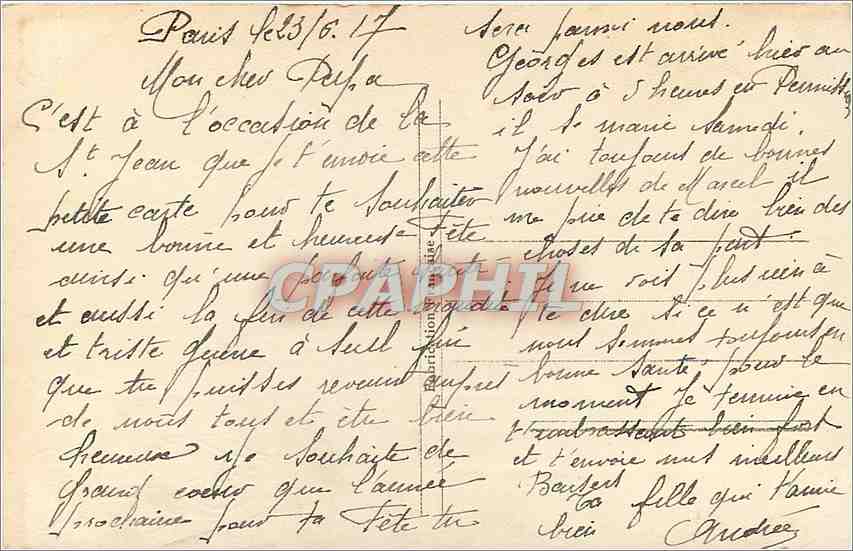 Paris le 23/6.17
Mon cher Papa
C'est à l'occasion de la
St Jean que je t'envoie cette
petite carte pour te souhaiter
une bonne et heureuse Fête
ainsi qu'une parfaite santé
et aussi la fin de cette maudite
et triste guerre à seul fin
que tu puisses revenir auprès
de nous tous et être bien
heureux je souhaite de
Grand coeur que l'année
prochaine pour ta Fête tu
sera parmi nous.
Georges est arrivé hier au
soir à 5 heures en Permission
il se marie Samedi.
J'ai toujours de bonnes
nouvelles de Marcel il
me prie de te dire bien des
choses de sa part.
Je ne vois plus rien à
te dire si ce n'est que
nous sommes toujours en
bonne santé pour le
moment je termine en
t'embrassant bien fort
et t'envoie mes meilleurs
Baisers
ta fille qui t'aime
bien Andrée
Fabrication française
CPAPHIL